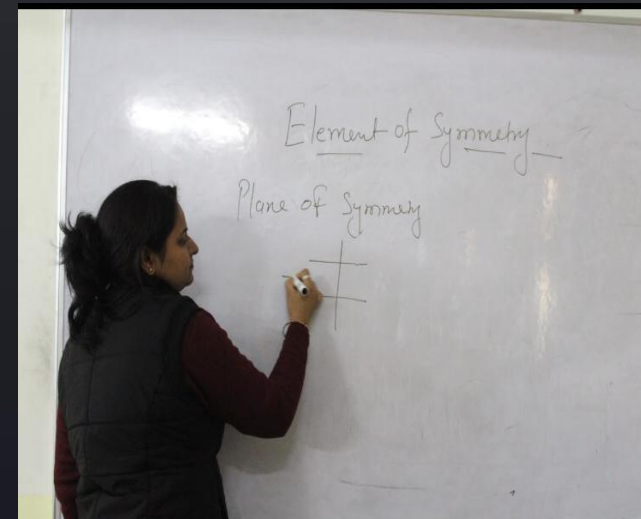 Element of Symmetry
Plane of Symmety